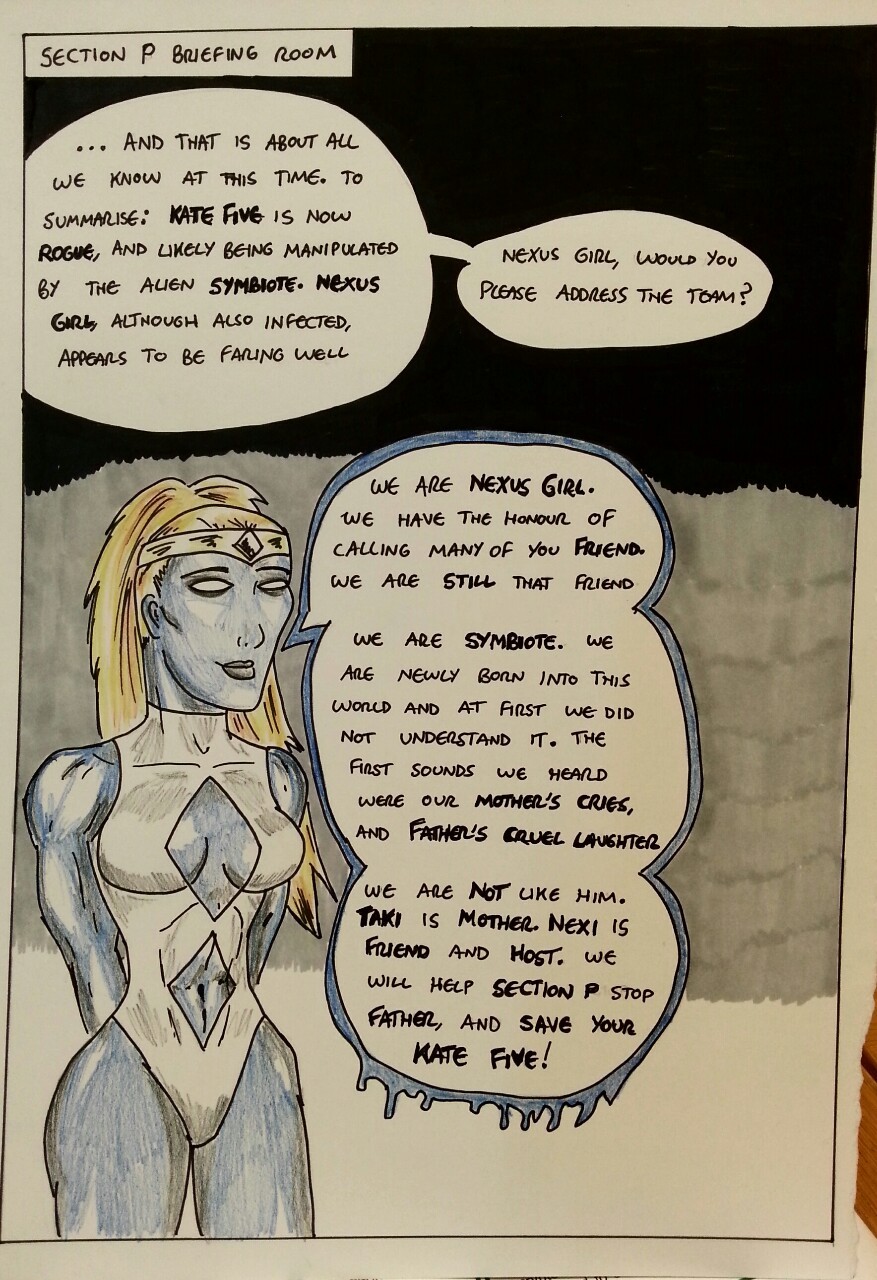 SECTION P BRIEFING ROOM
... AND THAT IS ABOUT ALL
WE KNOW AT THIS TIME. TO
SUMMARISE: KATE FIVE IS NOW
ROGUE, AND LIKELY BEING MANIPULATED
BY THE ALIEN SYMBIOTE. NEXUS
GIRL, ALTHOUGH ALSO INFECTED,
APPEARS TO BE FARING WELL
NEXUS GIRL, WOULD YOU
PLEASE ADDRESS THE TEAM?
WE ARE NEXUS GIRL.
WE HAVE THE HONOUR OF
CALLING MANY OF YOU FRIEND.
WE ARE STILL THAT FRIEND
WE ARE SYMBIOTE. WE
ARE NEWLY BORN INTO THIS
WORLD AND AT FIRST WE DID
NOT UNDERSTAND IT. THE
FIRST SOUNDS WE HEARD
WERE OUR MOTHER'S CRIES,
AND FATHER'S CRUEL LAUGHTER
WE ARE NOT LIKE HIM.
TAKI IS MOTHER. NEXI IS
FRIEND AND HOST. WE
WILL HELP SECTION P STOP
FATHER, AND SAVE YOUR
KATE FIVE!